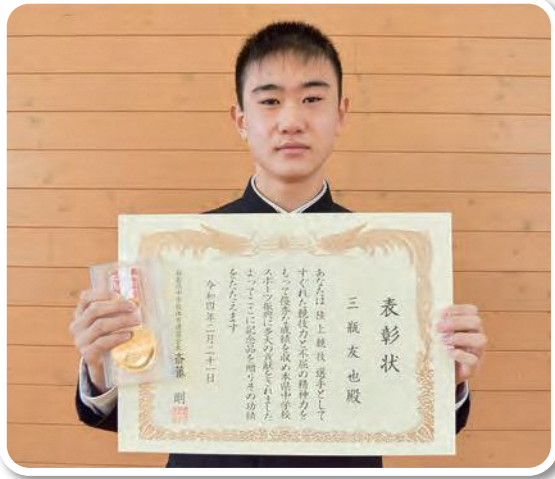 表彰状
三瓶友也殿
あなたは陸上競技選手として
すぐれた競技力と不屈の精神力を
もって優秀な成績を収め本県中学校
スポーツ振興に多大の貢献をされました
よってここに記念品を贈りその功績
をたたえます
令和四年二月二十一日
齋藤 剛